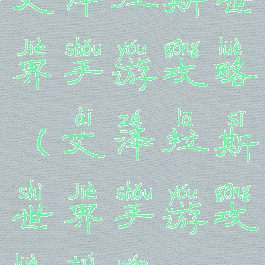 jiè shǒu yóu gōng lüè
界手游攻略
ài zé lā sī
(艾泽拉斯
shì jiè shǒu yóu gōng
世界手游攻